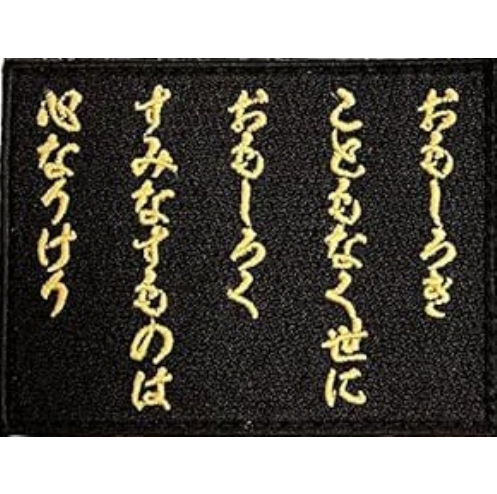 おもしろき
こともなく世に
おもしろく
すみなすものは
心なりけり